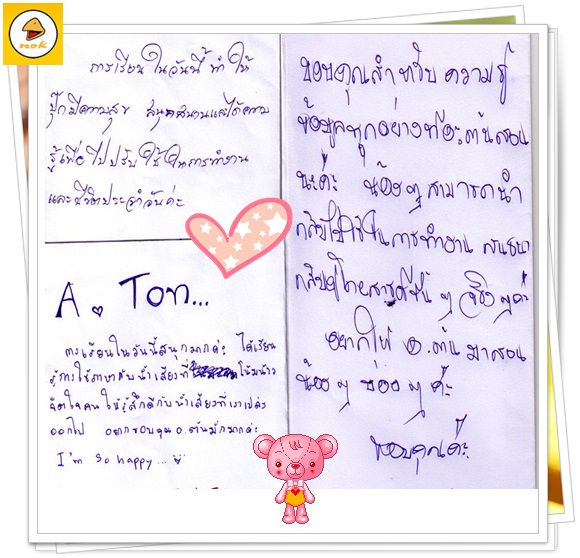 nok
การเรียนในวันนี้ ทำให้
ปุ๊กมีความสุข สนุกสนานและได้ความ
รู้เพื่อไปปรับใช้ในการทำงาน
และชีวิตประจำวันค่ะ
A. Ton...
การเรียนในวันนี้สนุกมากค่ะ ได้เรียน
รู้การใช้ภาษากับน้ำเสียงที่ โน้มน้าว
จิตใจคน ให้รู้สึกดีกับน้ำเสียงที่เราเปล่ง
ออกไป อยากขอบคุณ อ.ต้นมากมากค่ะ
I'm so happy...
ขอบคุณสำหรับความรู้
ข้อมูลทุกอย่างที่อ.ต้นสอน
นะค่ะ น้องๆ สามารถนำ
กลับไปใช้ในการทำงาน
ๆ จริงๆค่ะ
อยากให้ อ.ต้น มาสอน
น้องๆ บ่อยๆ ค่ะ
ขอบคุณค่ะ